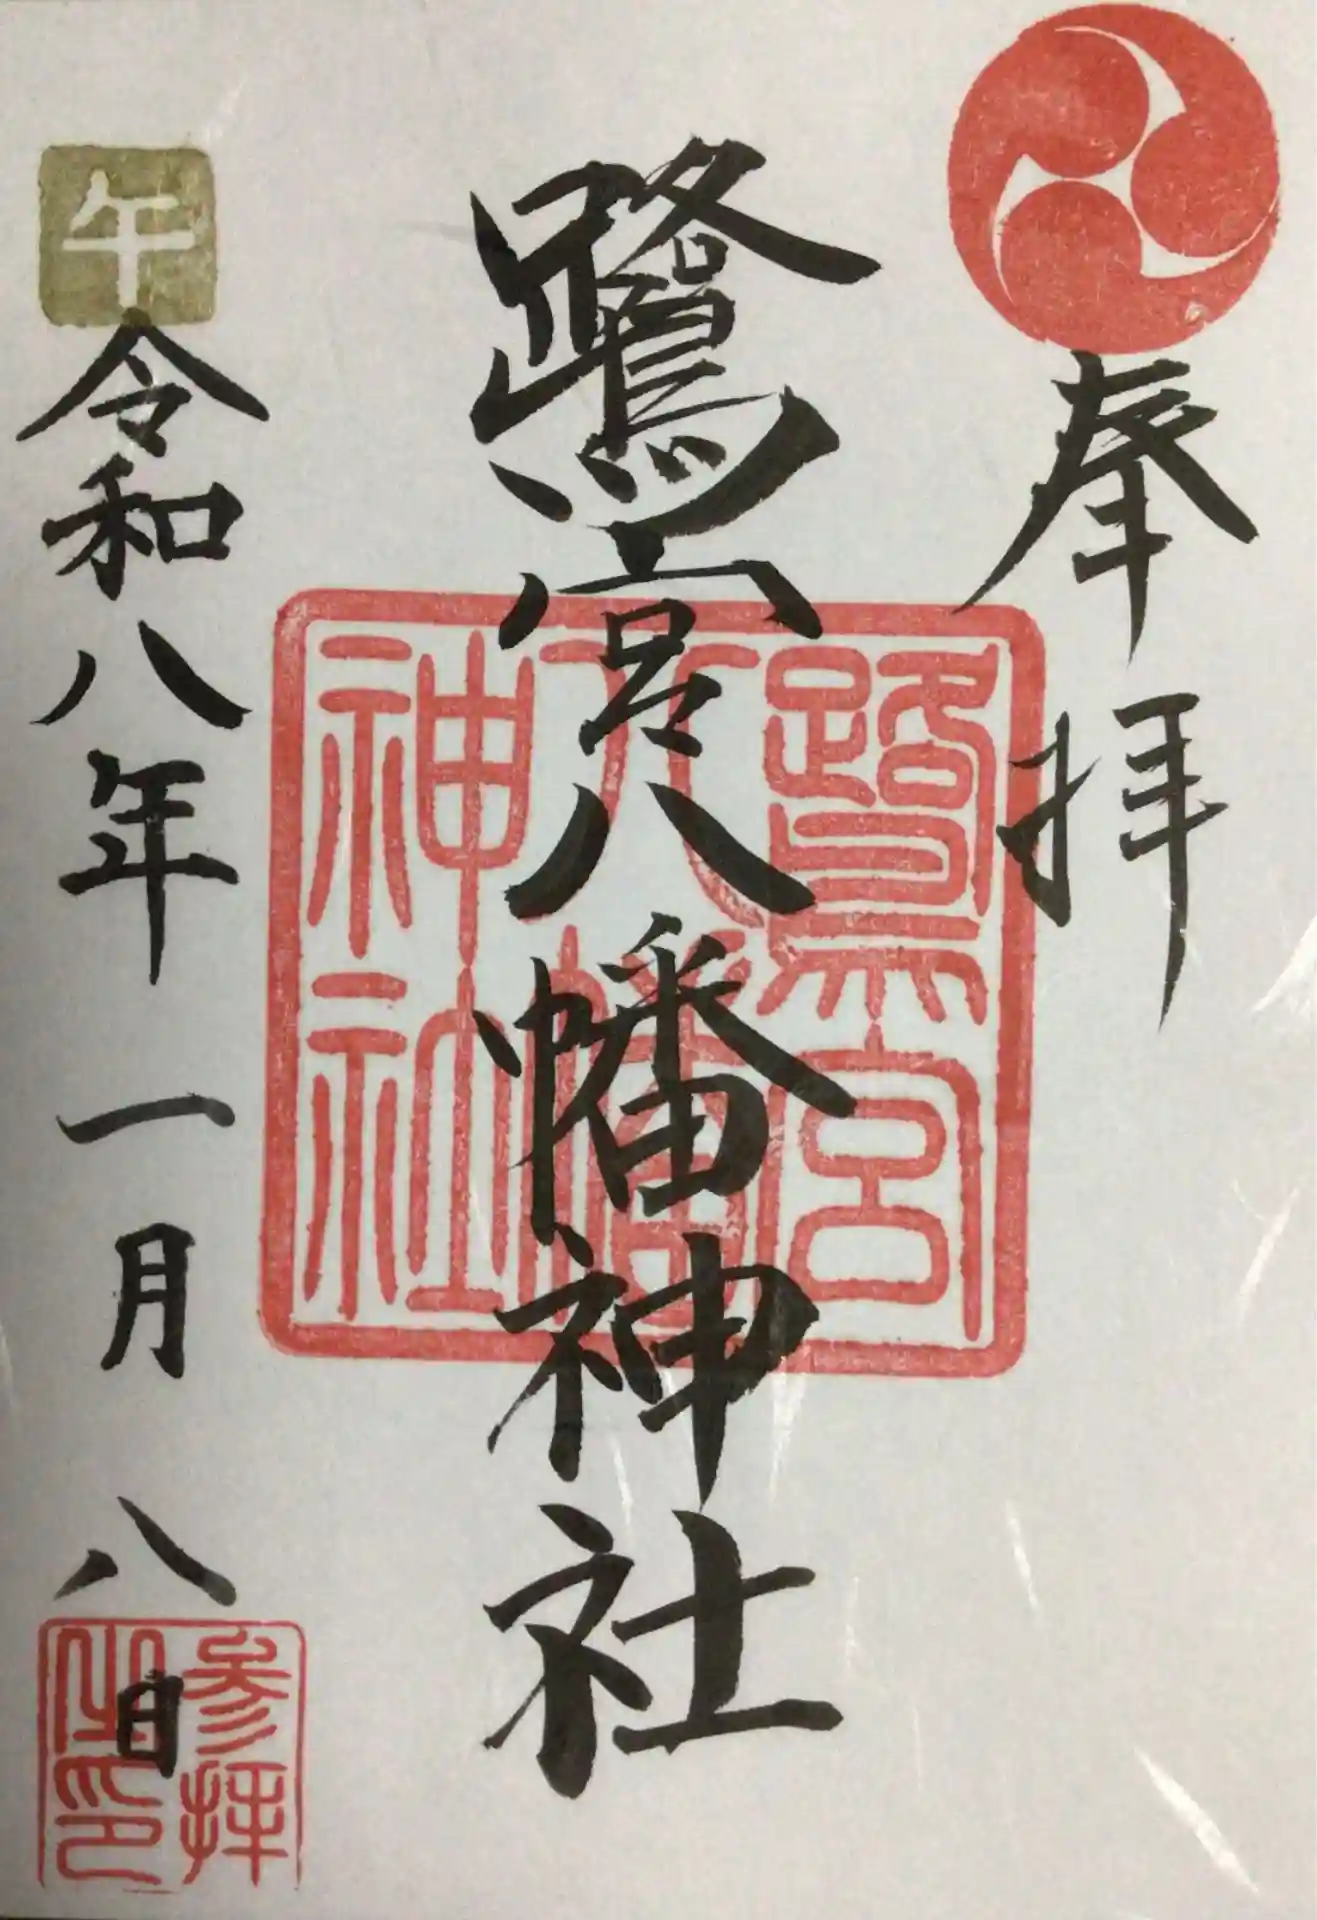 奉拝
鷺宮八幡神社
鷺宮
八幡
神社
午
令和八年一月八日
参拝
之印